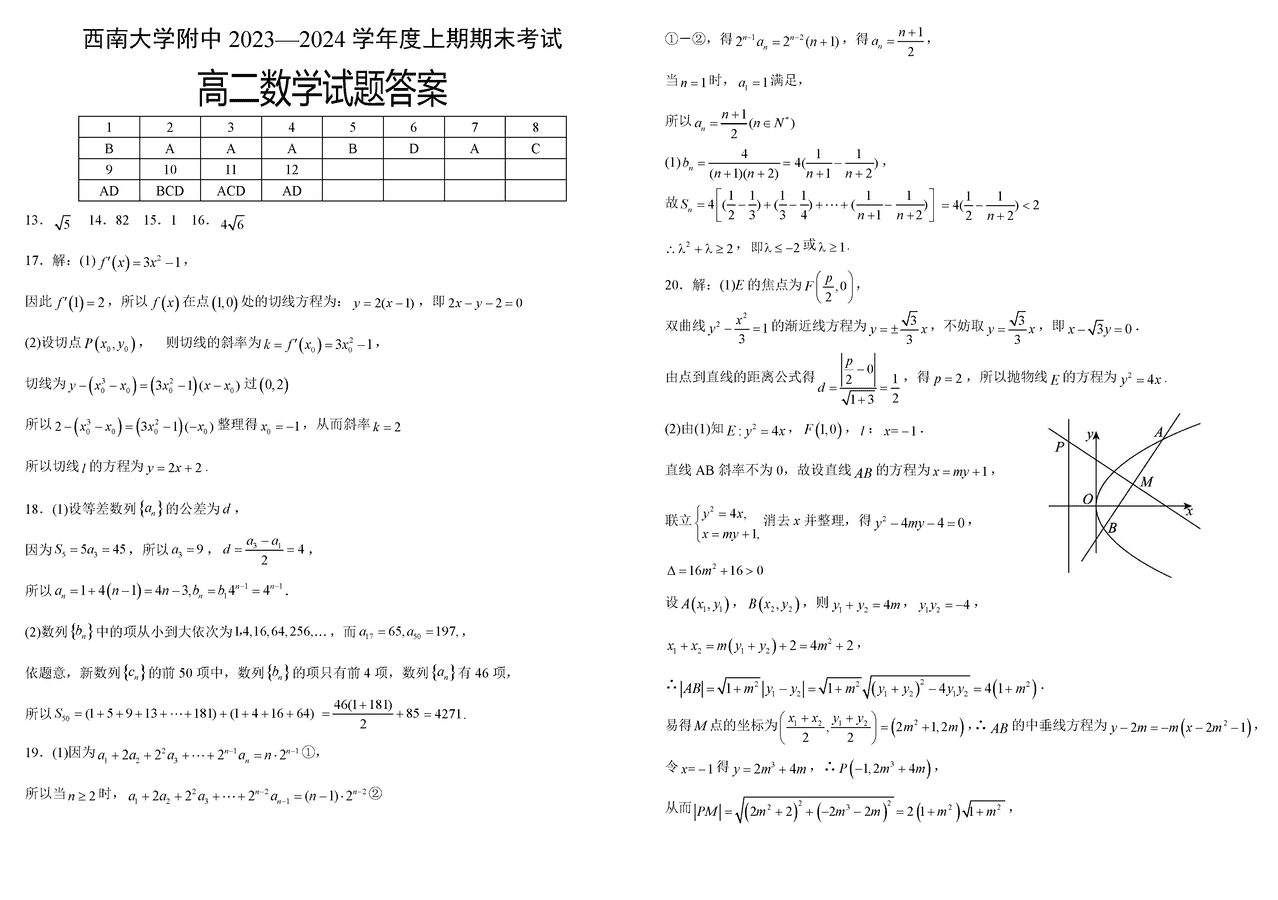 西南大学附中 2023—2024 学年度上期期末考试
高二数学试题答案
1 2 3 4 5 6 7 8
B A A A B D A C
9 10 11 12
AD BCD ACD AD
13. √5 14. 82 15. 1 16. 4√6
17. 解：(1) f′(x)=3x²−1，
因此 f′(1)=2，所以 f(x) 在点(1,0)处的切线方程为：y=2(x−1)，即 2x−y−2=0
(2)设切点 P(x₀,y₀)， 则切线的斜率为 k=f′(x₀)=3x₀²−1，
切线为 y−(x₀³−x₀)=(3x₀²−1)(x−x₀) 过(0,2)
所以 2−(x₀³−x₀)=(3x₀²−1)(−x₀) 整理得 x₀=−1，从而斜率 k=2
所以切线 l 的方程为 y=2x+2.
18. (1)设等差数列{aₙ}的公差为 d，
因为 S₅=5a₃=45，所以 a₃=9，d=(a₃−a₁)/2=4，
所以 aₙ=1+4(n−1)=4n−3,bₙ=b₁4ⁿ⁻¹=4ⁿ⁻¹.
(2)数列{bₙ}中的项从小到大依次为1,4,16,64,256,…，而 a₁₇=65,a₅₀=197,，
依题意，新数列{cₙ}的前 50 项中，数列{bₙ}的项只有前 4 项，数列{aₙ}有 46 项，
所以 S₅₀=(1+5+9+13+⋯+181)+(1+4+16+64) =46(1+181)/2+85=4271.
19. (1)因为 a₁+2a₂+2²a₃+⋯+2ⁿ⁻¹aₙ=n·2ⁿ⁻¹①，
所以当 n≥2 时，a₁+2a₂+2²a₃+⋯+2ⁿ⁻²aₙ₋₁=(n−1)·2ⁿ⁻²②
①−②，得 2ⁿ⁻¹aₙ=2ⁿ⁻²(n+1)，得 aₙ=(n+1)/2，
当 n=1 时，a₁=1 满足，
所以 aₙ=(n+1)/2(n∈N*)
(1) bₙ=4/((n+1)(n+2))=4(1/(n+1)−1/(n+2))，
故 Sₙ=4[(1/2−1/3)+(1/3−1/4)+⋯+(1/(n+1)−1/(n+2))]=4(1/2−1/(n+2))<2
∴λ²+λ≥2，即λ≤−2或λ≥1.
20. 解：(1)E 的焦点为 F(p/2,0)，
双曲线 y²−x²/3=1 的渐近线方程为 y=±(√3/3)x，不妨取 y=(√3/3)x，即 x−√3y=0.
由点到直线的距离公式得 d=|p/2−0|/√(1+3)=1/2，得 p=2，所以抛物线 E 的方程为 y²=4x.
(2)由(1)知 E:y²=4x，F(1,0)，l：x=−1.
直线 AB 斜率不为 0，故设直线 AB 的方程为 x=my+1，
联立{y²=4x, x=my+1, 消去 x 并整理，得 y²−4my−4=0，
Δ=16m²+16>0
设 A(x₁,y₁)，B(x₂,y₂)，则 y₁+y₂=4m，y₁y₂=−4，
x₁+x₂=m(y₁+y₂)+2=4m²+2，
∴|AB|=√(1+m²)|y₁−y₂|=√(1+m²)√((y₁+y₂)²−4y₁y₂)=4(1+m²).
易得 M 点的坐标为((x₁+x₂)/2,(y₁+y₂)/2)=(2m²+1,2m)，∴AB 的中垂线方程为 y−2m=−m(x−2m²−1)，
令 x=−1 得 y=2m³+4m，∴P(−1,2m³+4m)，
从而|PM|=√((2m²+2)²+(−2m³−2m)²)=2(1+m²)√(1+m²)，
y
A
P
M
O
x
B